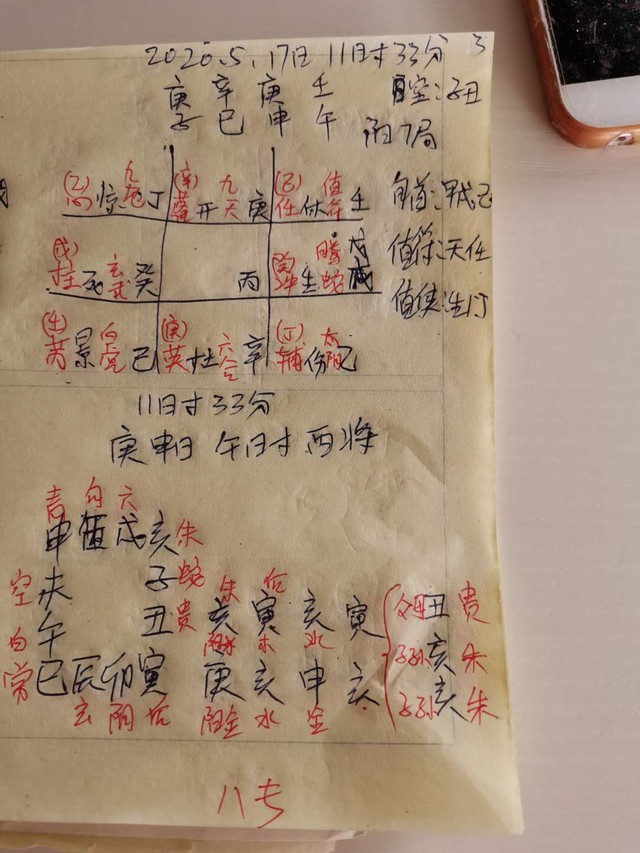 2020.5.17日11时33分 3
庚 辛 庚 壬 日空:子丑
子 巳 申 午 阳7局
(乙) 惊 九地 丁 (辛) 蓬 开 九天 庚 (己) 任 休 值符 壬 旬首:甲戌己
值符:天任
(戊) 柱 死 玄武 癸 丙 冲 生 腾蛇 戊 值使:生门
(壬) 芮 景 白虎 己 (庚) 英 杜 六合 辛 (丁) 辅 伤 太阴
11时33分
庚申日 午时 酉将
青 白 六
申 酉 戌 亥 朱
空 未 子 蛇 朱 后
午 丑 贵 亥 寅 亥 寅 父母 丑 贵
白 水 木 水 子孙 亥 朱
常 巳 辰 卯 寅 庚 亥 申 亥 子孙 亥 朱
玄 阴 后 阳金 水 金
八专